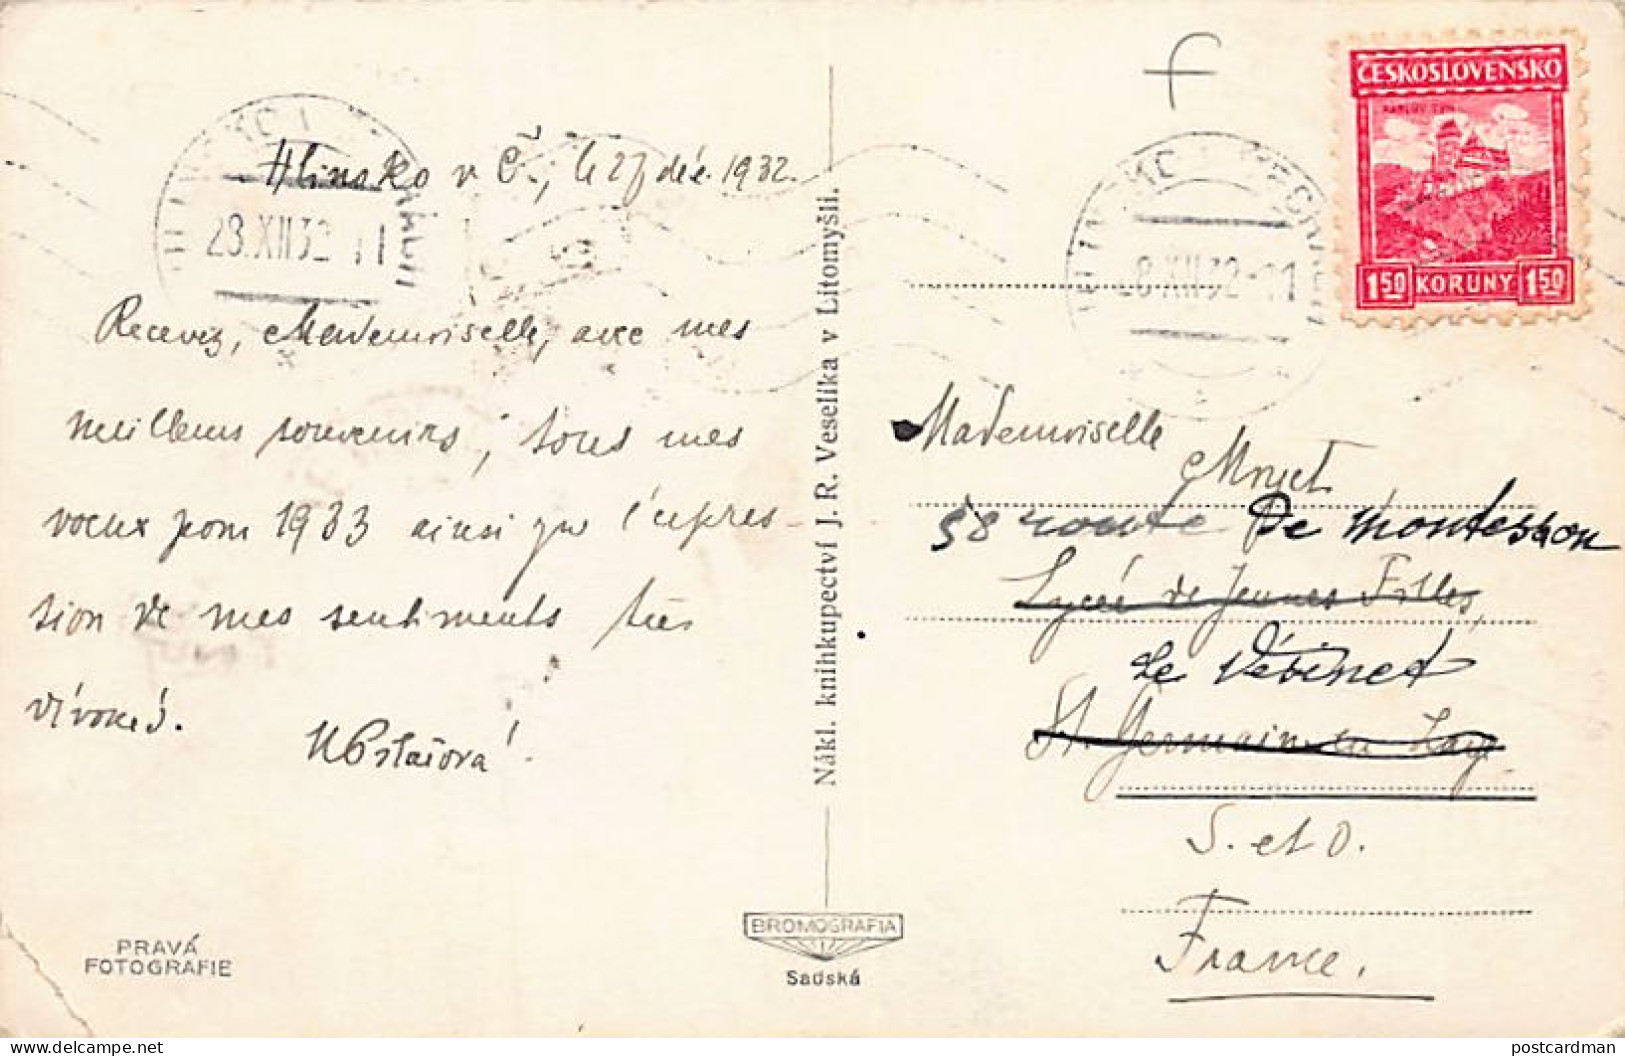 Hlinsko v Č., le 27 déc. 1932.
28.XII.32-11
Recevez, Mademoiselle, avec mes
meilleurs souvenirs, tous mes
voeux pour 1933 ainsi que l'expres-
sion de mes sentiments très
dévoués.
PRAVÁ
FOTOGRAFIE
Nákl. knihkupectví J. R. Veselíka v Litomyšli.
BROMOGRAFIA
Sadská
f
ČESKOSLOVENSKO
KARLŮV TÝN
1.50 KORUNY 1.50
28.XII.32-11
Mademoiselle
58 route De Montesson
Lycée de Jeunes Filles,
Le Vésinet
St. Germain en Laye
S. et O.
France.
postcardman